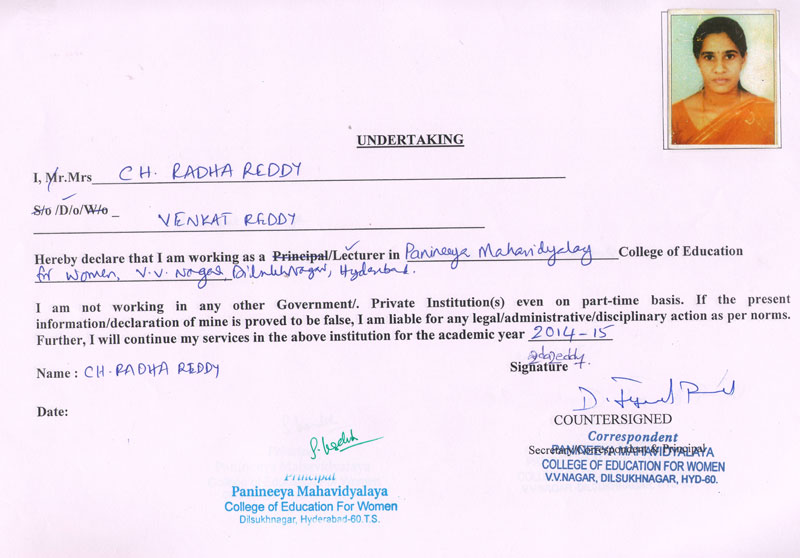 UNDERTAKING
I, Mr.Mrs CH. RADHA REDDY
S/o /D/o/W/o
VENKAT REDDY
Hereby declare that I am working as a Principal/Lecturer in Panineeya Mahavidyalay College of Education
for Women, V.V. Nagar, DilsukhNagar, Hyderabad.
I am not working in any other Government/. Private Institution(s) even on part-time basis. If the present
information/declaration of mine is proved to be false, I am liable for any legal/administrative/disciplinary action as per norms.
Further, I will continue my services in the above institution for the academic year 2014-15
Name : CH. RADHA REDDY
Signature
Date:
COUNTERSIGNED
Correspondent
Secretary/Correspondent & Principal
PANINEEYA MAHAVIDYALAYA
COLLEGE OF EDUCATION FOR WOMEN
V.V.NAGAR, DILSUKHNAGAR, HYD-60.
Principal
Panineeya Mahavidyalaya
College of Education For Women
Dilsukhnagar, Hyderabad-60.T.S.